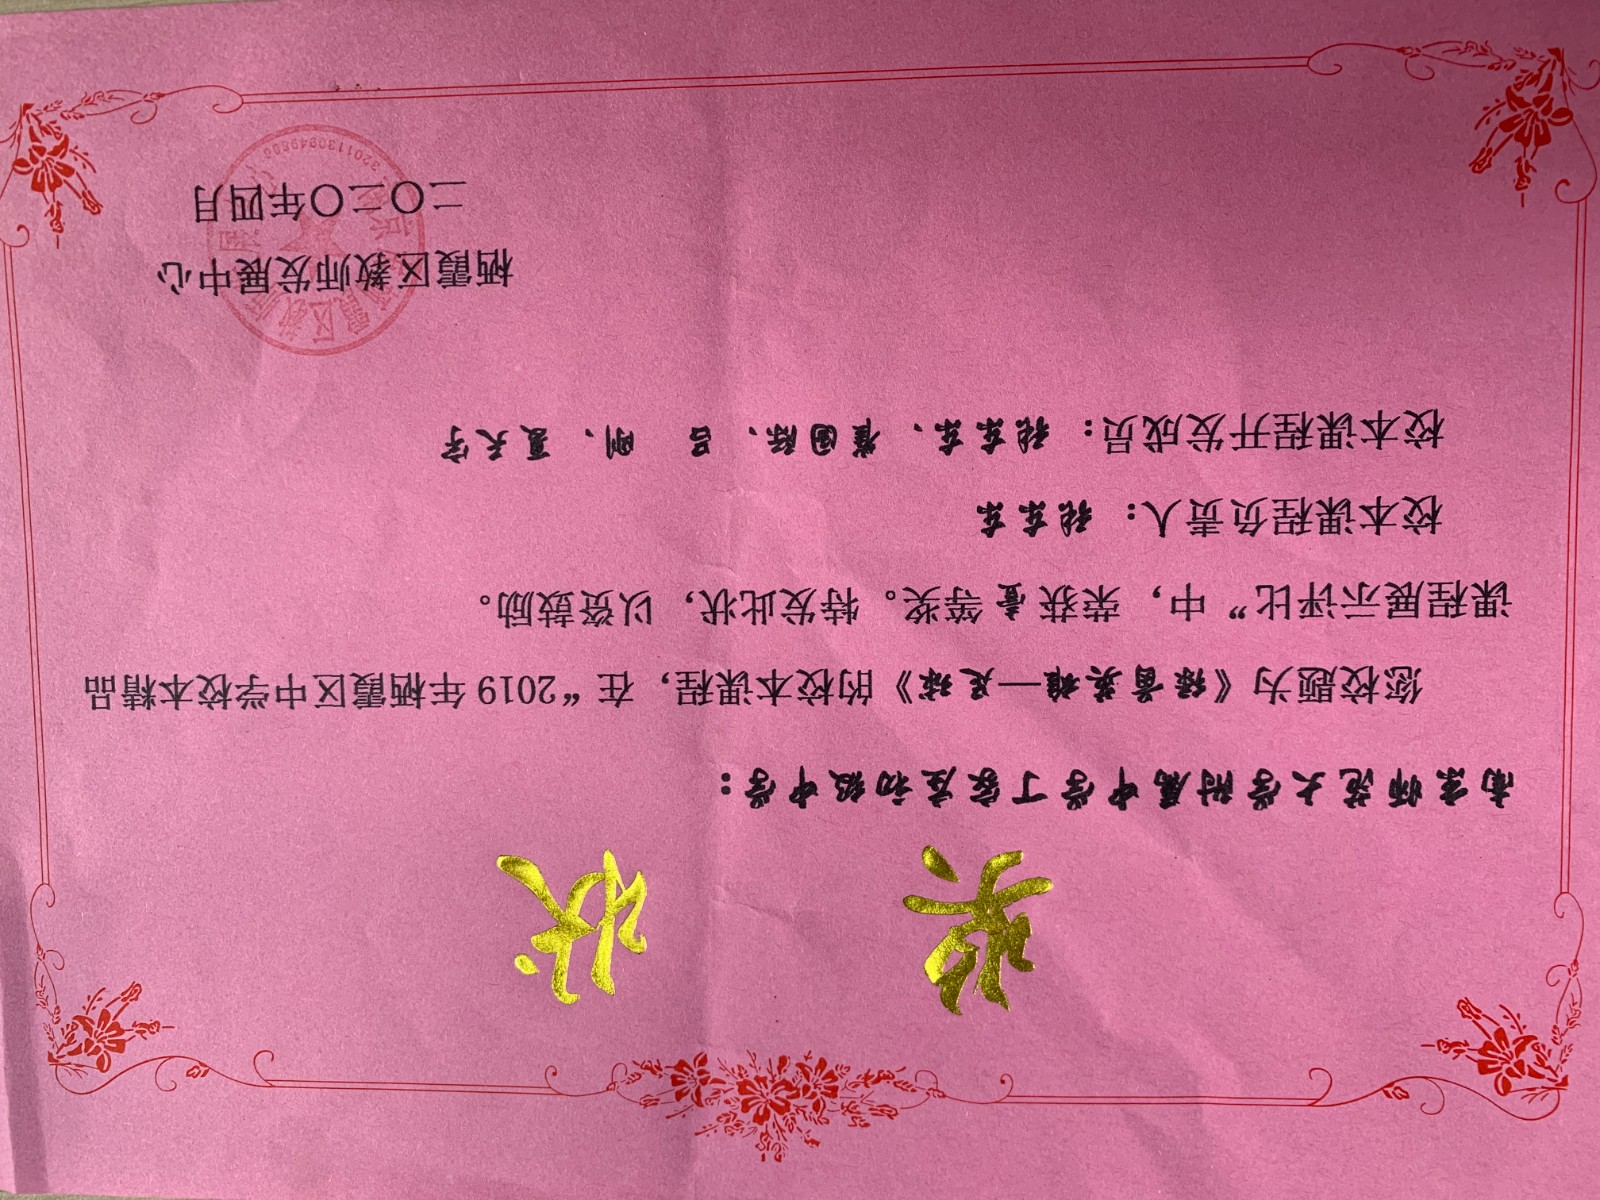 奖 状
南京师范大学附属中学丁家庄初级中学：
您校题为《绿茵英雄—足球》的校本课程，在“2019年栖霞区中学校本精品
课程展示评比”中，荣获壹等奖。特发此状，以资鼓励。
校本课程负责人：张莘莘
校本课程开发成员：张莘莘、崔国际、吕 刚、夏天宇
栖霞区教师发展中心
二〇二〇年四月